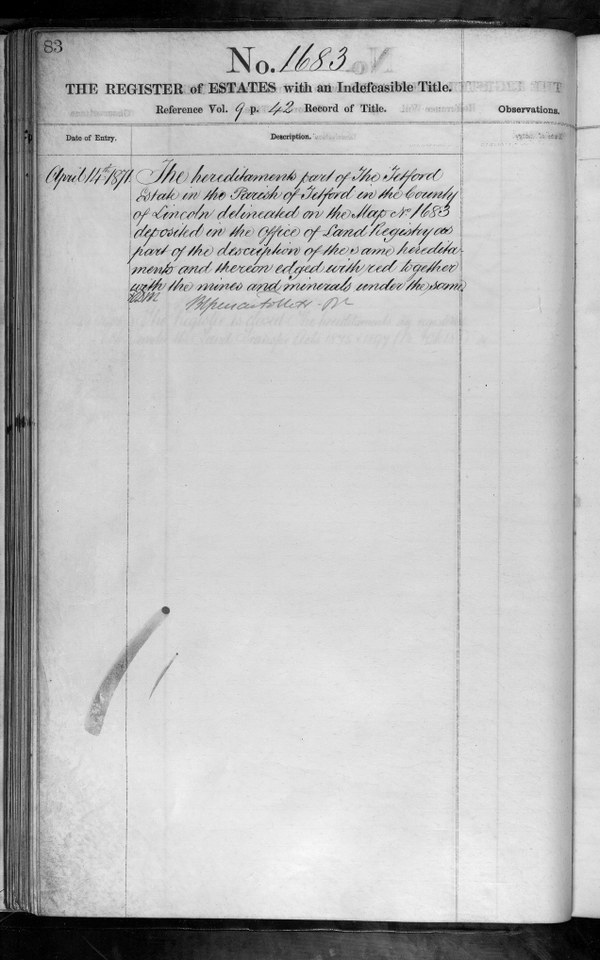 83
No. 1683
THE REGISTER of ESTATES with an Indefeasible Title.
Reference Vol. 9 p. 42 Record of Title.
Observations.
Date of Entry.
Description.
April 14th 1871. The hereditaments part of The Tetford
Estate in the Parish of Tetford in the County
of Lincoln delineated on the Map No 1683
deposited in the Office of Land Registry as
part of the description of the same heredita-
ments and thereon edged with red together
with the mines and minerals under the same